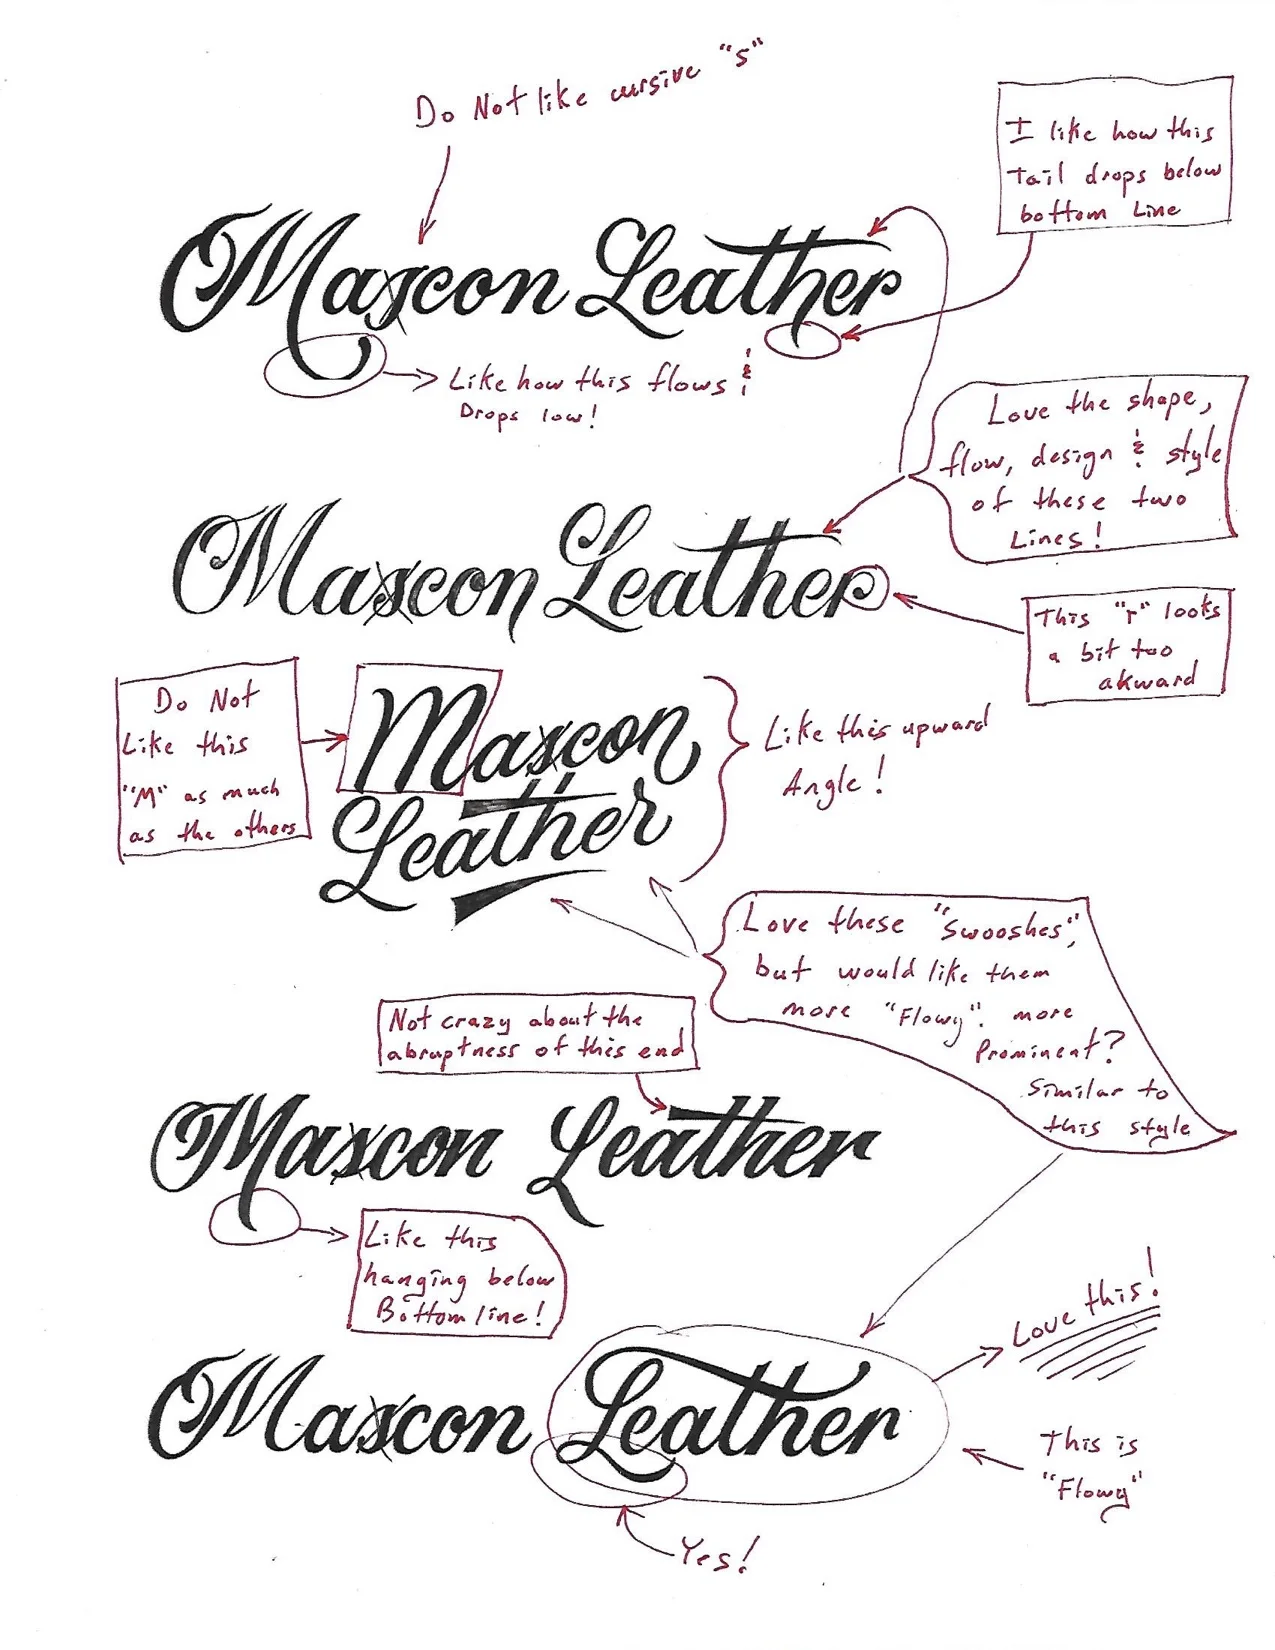 Do Not like cursive "s"
I like how this
Tail drops below
bottom Line
Mascon Leather
Like how this flows &
Drops low!
Love the shape,
flow, design & style
of these two
Lines!
Mascon Leather
This "r" looks
a bit too
akward
Do Not
Like this
"M" as much
as the others
Mascon
Leather
Like this upward
Angle!
Love these "Swooshes",
but would like them
more "Flowy". more
Prominent?
Similar to
this style
Not crazy about the
abruptness of this end
Mascon Leather
Like this
hanging below
Bottom line!
Mascon Leather
Love this!
This is
"Flowy"
Yes!